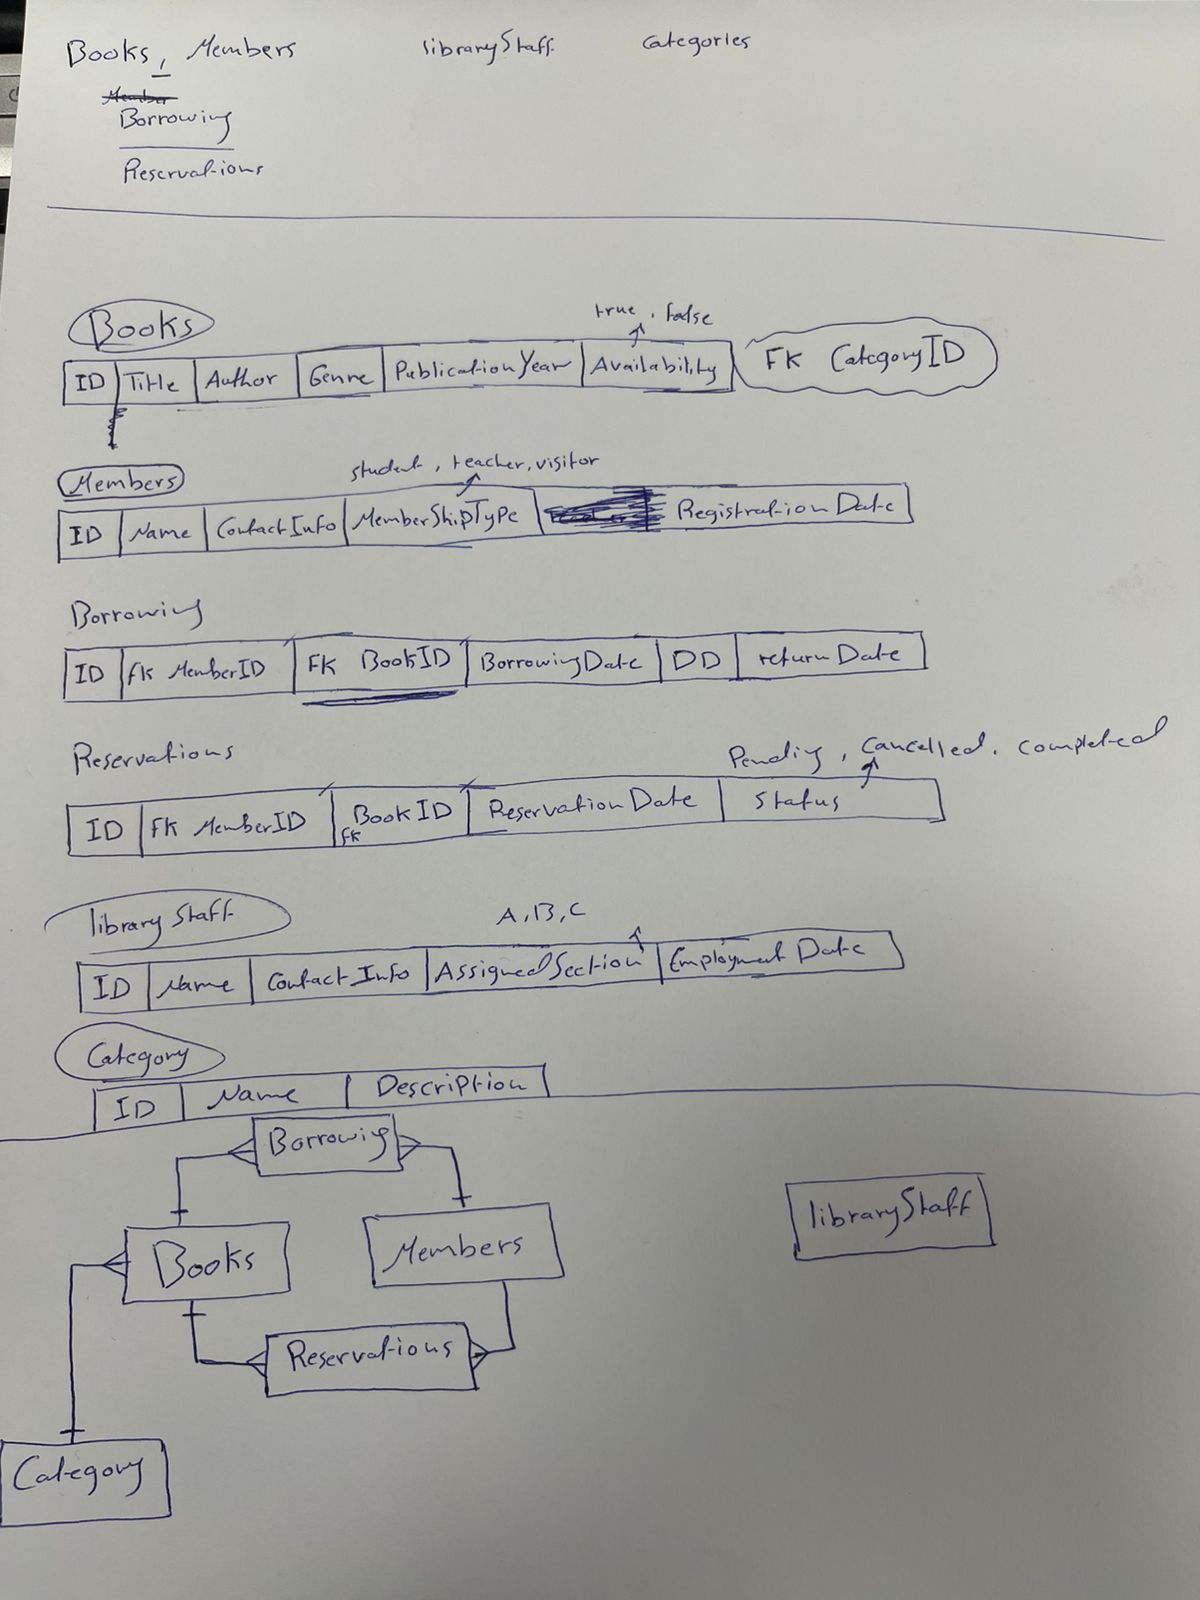 Books, Members libraryStaff Categories
Member
Borrowing
Reservations
Books
true, false
ID Title Author Genre PublicationYear Availability FK CategoryID
Members
student, teacher, visitor
ID Name ContactInfo MemberShipType Registration Date
Borrowing
ID FK MemberID FK BookID BorrowingDate DD returnDate
Reservations
Pending, Cancelled, completed
ID FK MemberID FK BookID Reservation Date Status
library Staff
A, B, C
ID Name Contact Info Assigned Section Employment Date
Category
ID Name Description
Borrowing
libraryStaff
Books Members
Reservations
Category